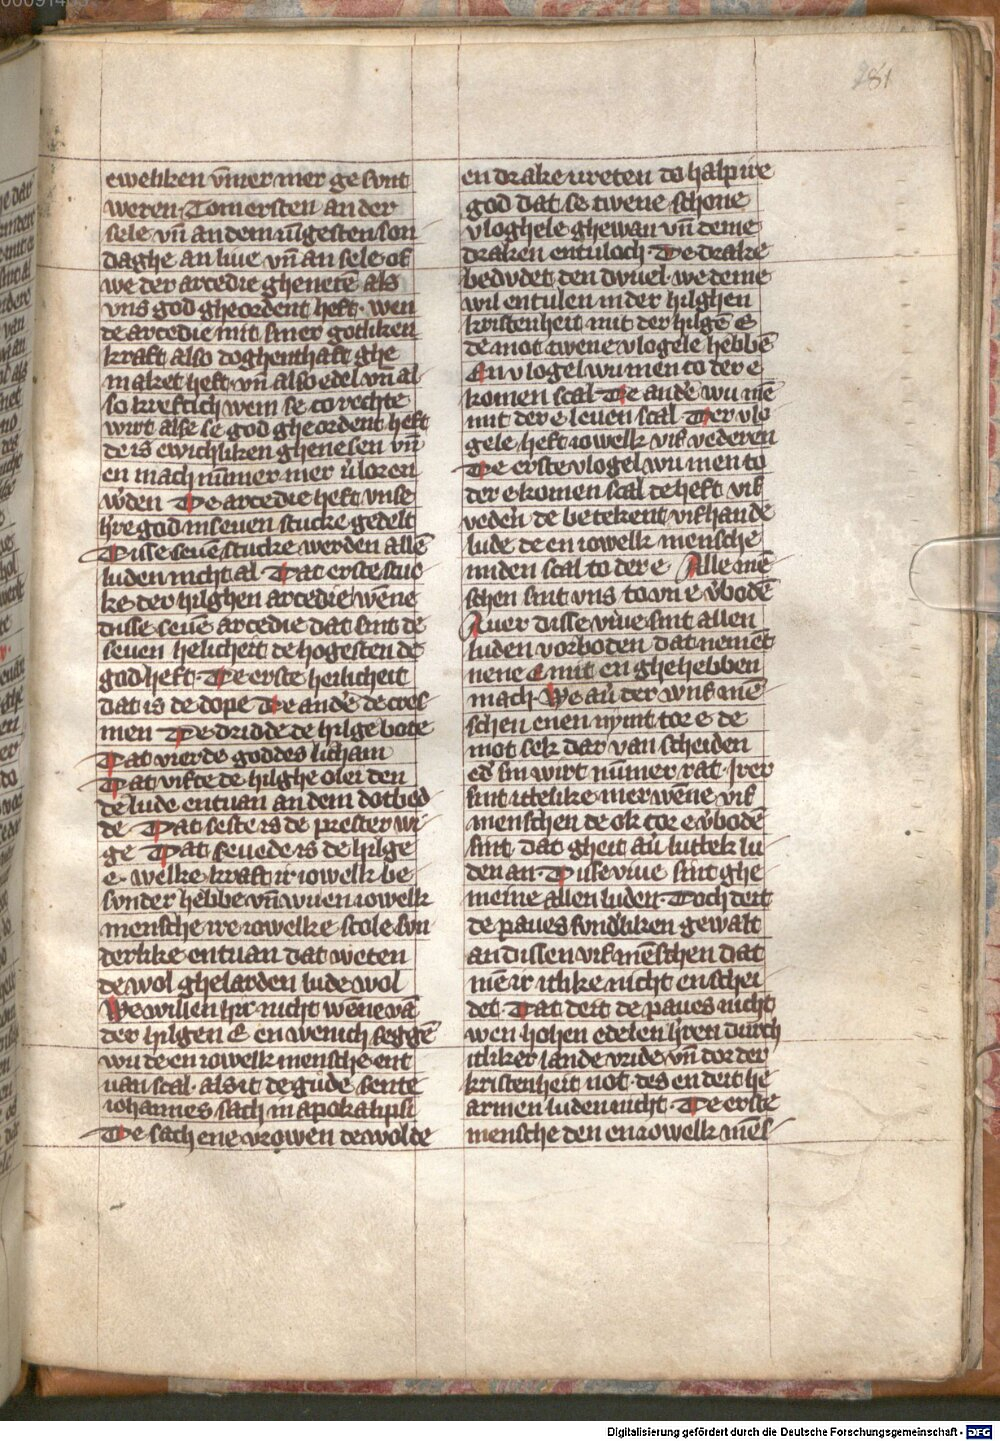 81
eweliken vm̄er mer ge sunt
weren Tom ersten an der
sele vn̄ an dem iūgesten son
daghe an liue vn̄ an sele of
we der arcedie ghenetē als
vns god gheordent heft· wen
de arcedie mit siner gotliken
kraft also doghenthaft ghe
maket heft· vn̄ also edel vn̄ al
so kreftich wem se to rechte
wirt alse se god gheordent heft
de is ewichliken ghenesen vn̄
en mach nūmer mer v̓loren
w̓den De arcedie heft vnse
h̓re god in seuen stucke gedelt
Disse seuē stucke werden allē
luden nicht al Dat erste stuc
ke der hilghen arcedie wēne
disse seuē arcedie dat sint de
seuen helicheit de hogesten de
god heft· De erste heilicheit
dat is de dope De ander̓ de cres
men De dridde de hilge bote
Dat vierde goddes licham
Dat vifte de hilghe olei den
de lude entuan an dem dotbed
de Dat seste is de prester wi
ge Dat seuede is de hilge
e· welke kraft ir iowelk be
sunder hebbe vn̄ wu en iowelk
mensche ire iowelke scole sun
derlike entuan dat weten
de wol ghelarden lude wol
We willen hir nicht wēne vā
der hilgen E en wenich seggē
wu de en iowelk mensche ent
uan scal· als it de gude sente
iohannes sach in apokalipsi
De sach ene vrowen de wolde
en drake vreten do halp ire
god dat se twene schone
vloghele ghewan vn̄ deme
draken entuloch· De drake
bedudet den duuel· we deme
wil entulen in der hilghen
kristenheit mit der hilgē E
de mot twene vlogele hebbē
En vlogel wu men to der e
komen scal De ander̓ wu mē
mit der e leuen scal Der vlo
gele heft iowelk vif vederen
De erste vlogel wu men to
der e komen scal de heft vif
veder̓n de betekent vif hande
lude de en iowelk mensche
miden scal to der e Alle mē
schen sint vns to vn e v̓bodē
Auer disse viue sint allen
luden vorboden dat nemēt
nene E mit en ghehebben
mach· We au̓ der vnf mē
schen enen nymt toe e de
mot sek dar van scheiden
ed̓ sin wirt nūmer rat· Irer
sint itteslike mer wēne vif
menschen de ok toe e v̓bodē
sint dat gheit au̓ luttek lu
den an· Disse viue sint ghe
meine allen luden· Doch deit
de paues sund̓liken gewalt
an dissen vif mēschen dat
mē ir itlike nicht enschei
det· Dat deit de paues nicht
wen hohen edelen h̓ren durch
itliker lande vride vn̄ dor der
kristenheit not· des en deit he
armen luden nicht· De erste
mensche den en iowelk mēs
Digitalisierung gefördert durch die Deutsche Forschungsgemeinschaft - DFG